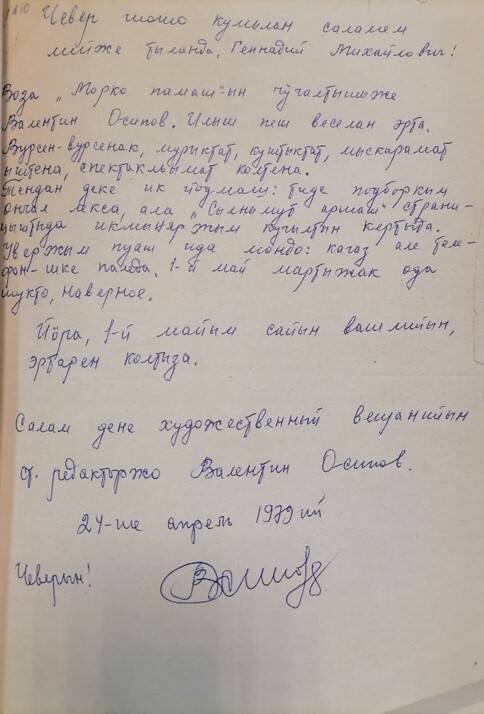 Чевер шошо кумылан саламем
лийже тыланда, Геннадий Михайлович!
Воза „Морко памаш"-ын чӱчалтышыже
Валентин Осипов. Илыш пеш веселан эрта.
Вурсен-вурсенак, мурыктат, куштыктат, мыскарамат
ыштена, спектакльымат колтена.
Тендан деке ик йодмаш: тиде подборкым
ончал лекса, ала „Сылнымут аршаш" страни-
цыштыда икмыняржым кучылтын кертыда.
Увержым пуаш ида мондо: кагаз але теле-
фон-шке палыда. 1-й май мартыжак ода
шукто, наверное.
Йӧра, 1-й майым сайын вашлийын,
эртарен колтыза.
Салам дене художественный вещанийын
ст. редакторжо Валентин Осипов.
24-ше апрель 1979 ий
Чеверын!